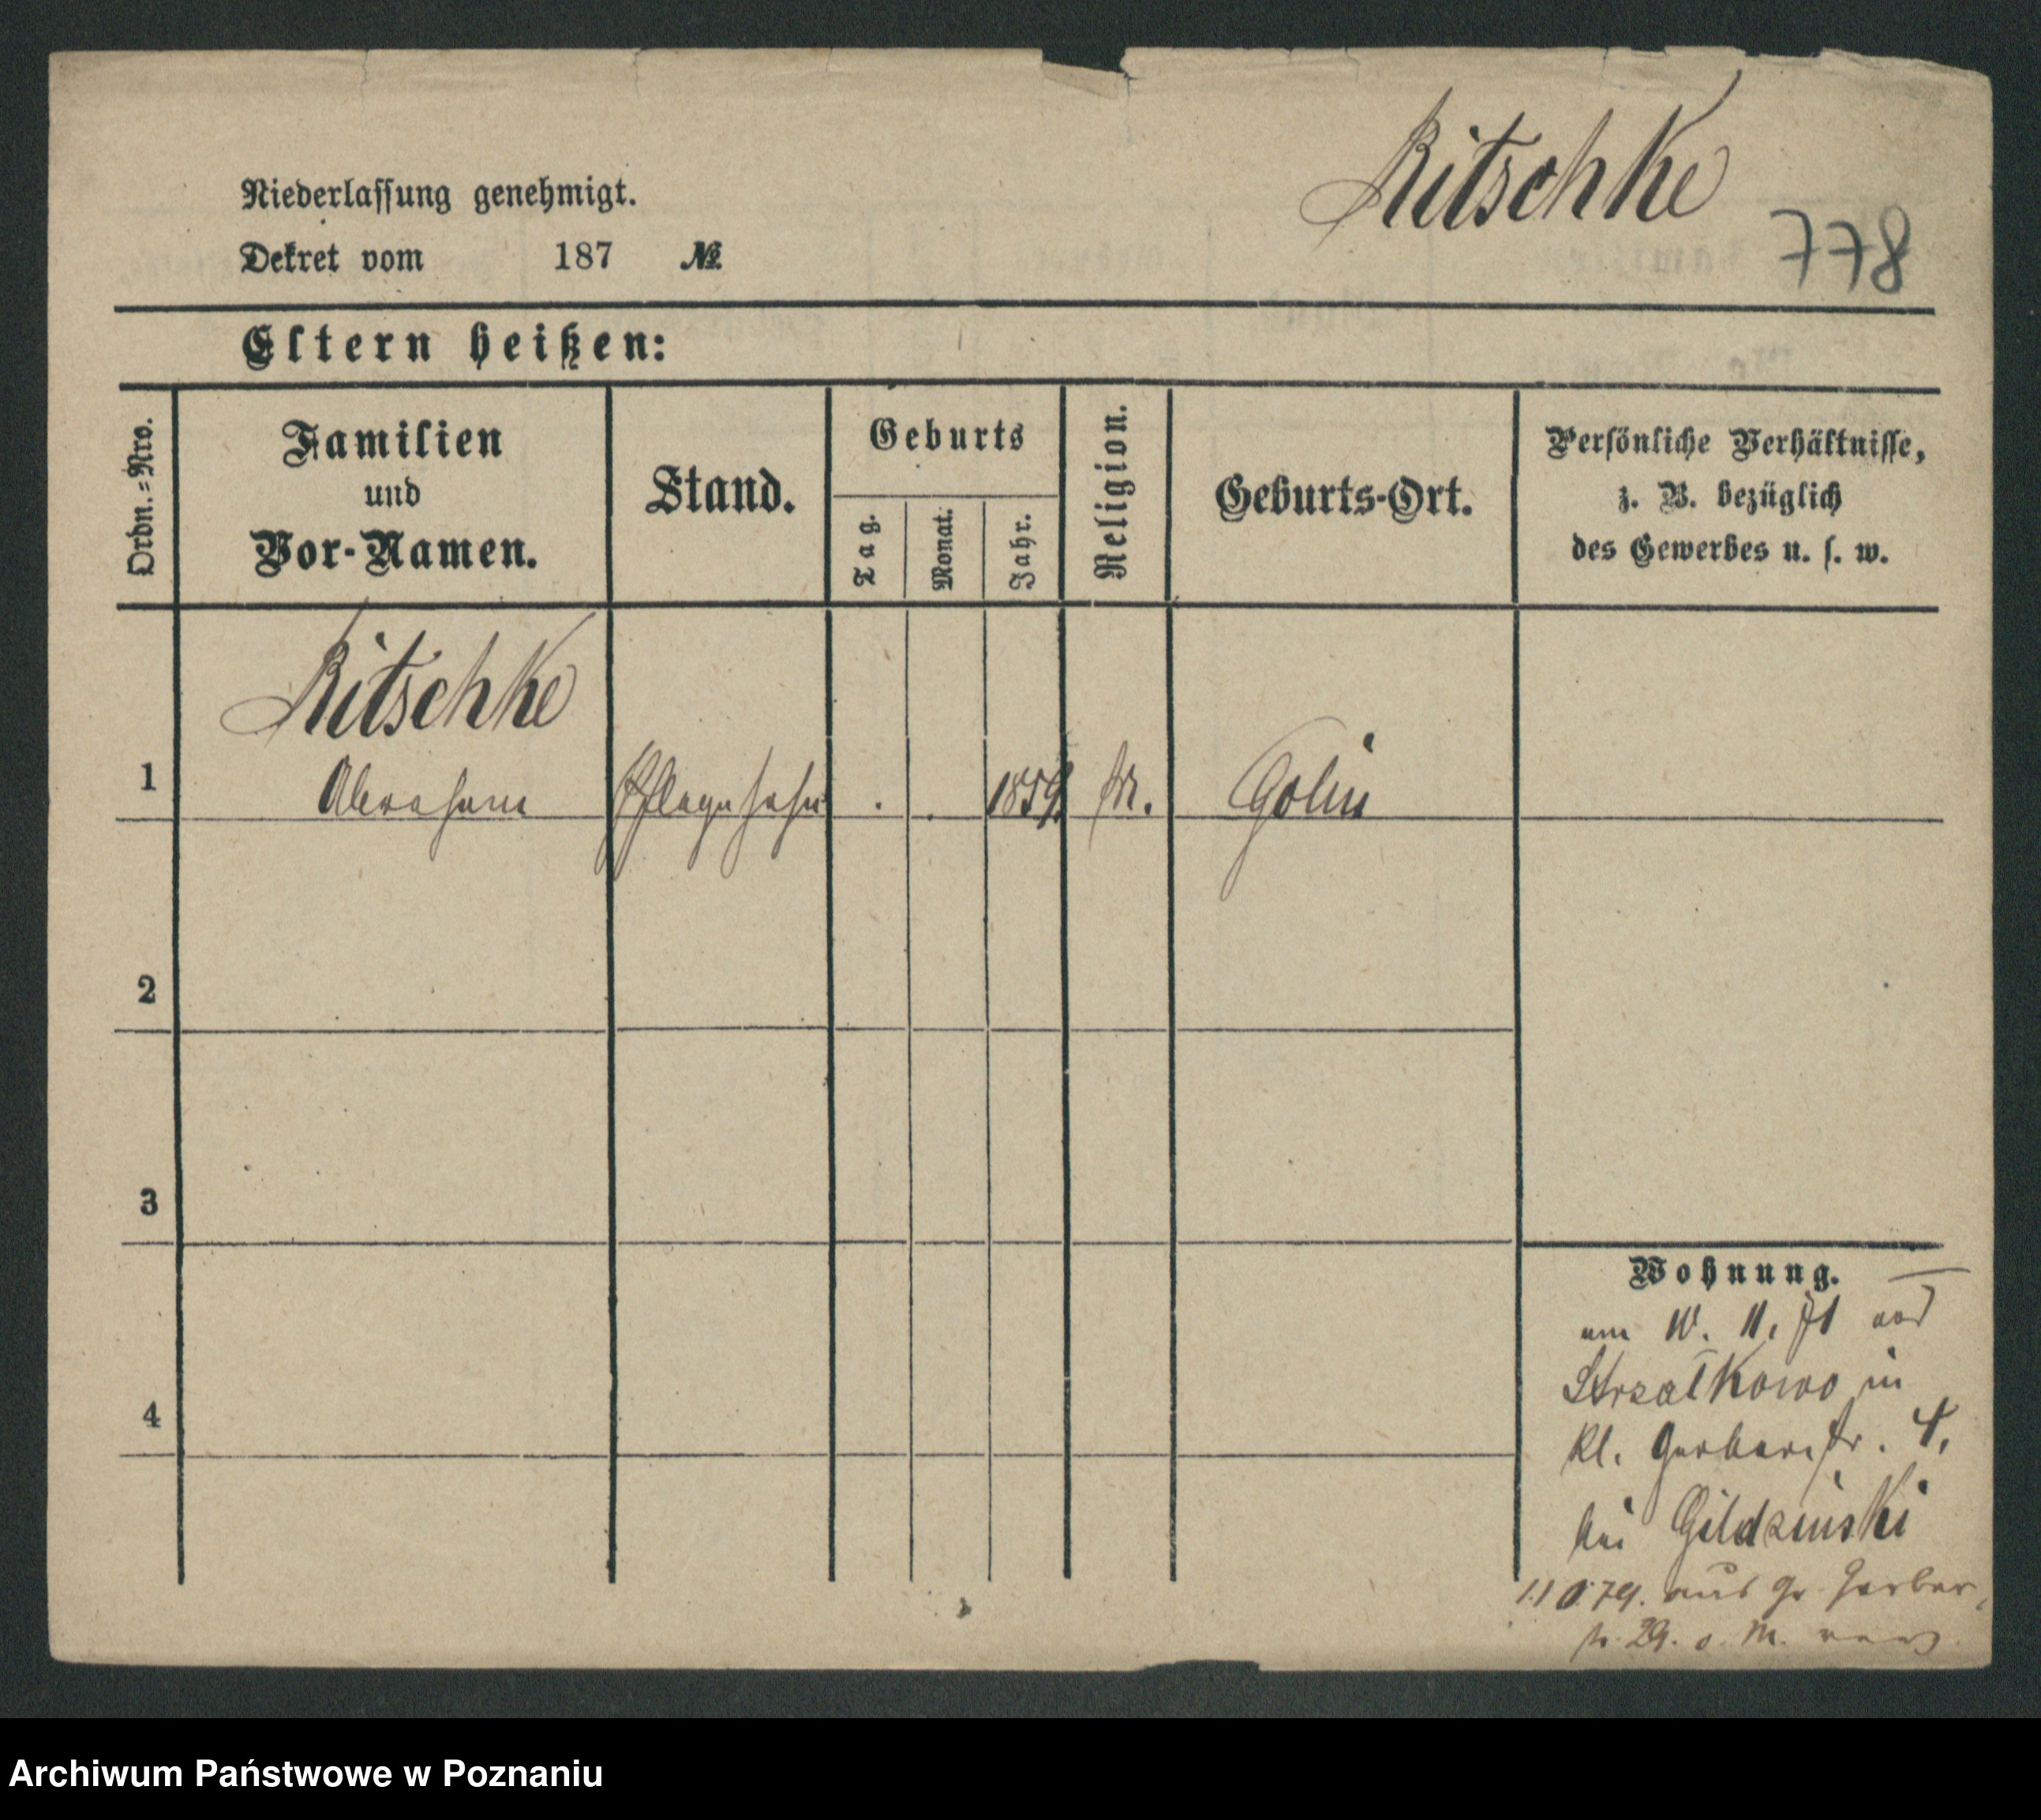 Ritschke
778
Niederlassung genehmigt.
Dekret vom 187 №
Eltern heißen:
Ordn.=Nro.
Familien
und
Vor-Namen.
Stand.
Geburts
Tag.
Monat.
Jahr.
Religion.
Geburts-Ort.
Persönliche Verhältnisse,
z. B. bezüglich
des Gewerbes u. s. w.
Ritschke
1 Abraham Pflegesohn 1859 M. Golin
2
3
4
Wohnung.
am 10. 11. 71 aus
Strzałkowo in
Kl. Gerberstr. 4,
bei Gildzinski
79. aus Gr. Gerber
29.
Archiwum Państwowe w Poznaniu